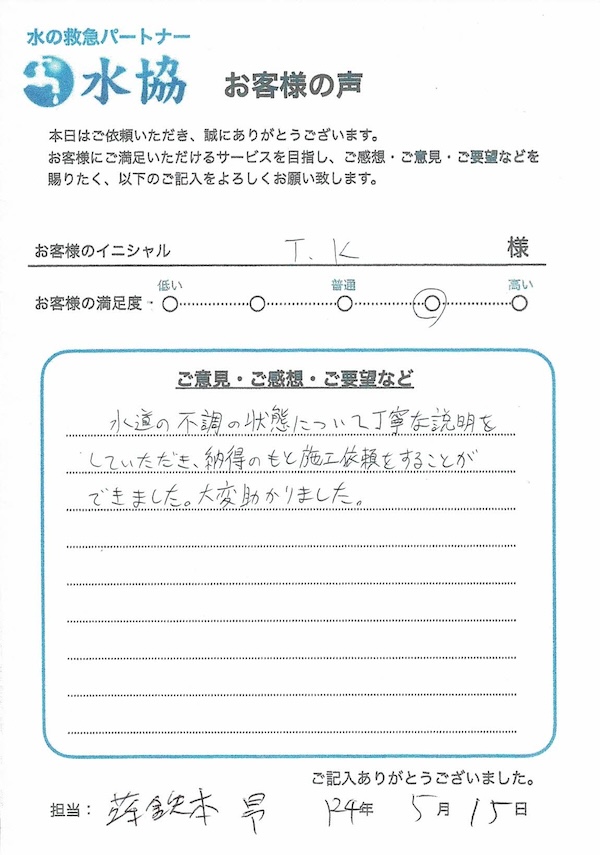 水の救急パートナー
水協 お客様の声
本日はご依頼いただき、誠にありがとうございます。
お客様にご満足いただけるサービスを目指し、ご感想・ご意見・ご要望などを
賜りたく、以下のご記入をよろしくお願い致します。
お客様のイニシャル T.K 様
低い 普通 高い
お客様の満足度
ご意見・ご感想・ご要望など
水道の不調の状態について丁寧な説明を
していただき、納得のもと施工依頼をすることが
できました。大変助かりました。
ご記入ありがとうございました。
担当: 本 昂 年 5月 15日